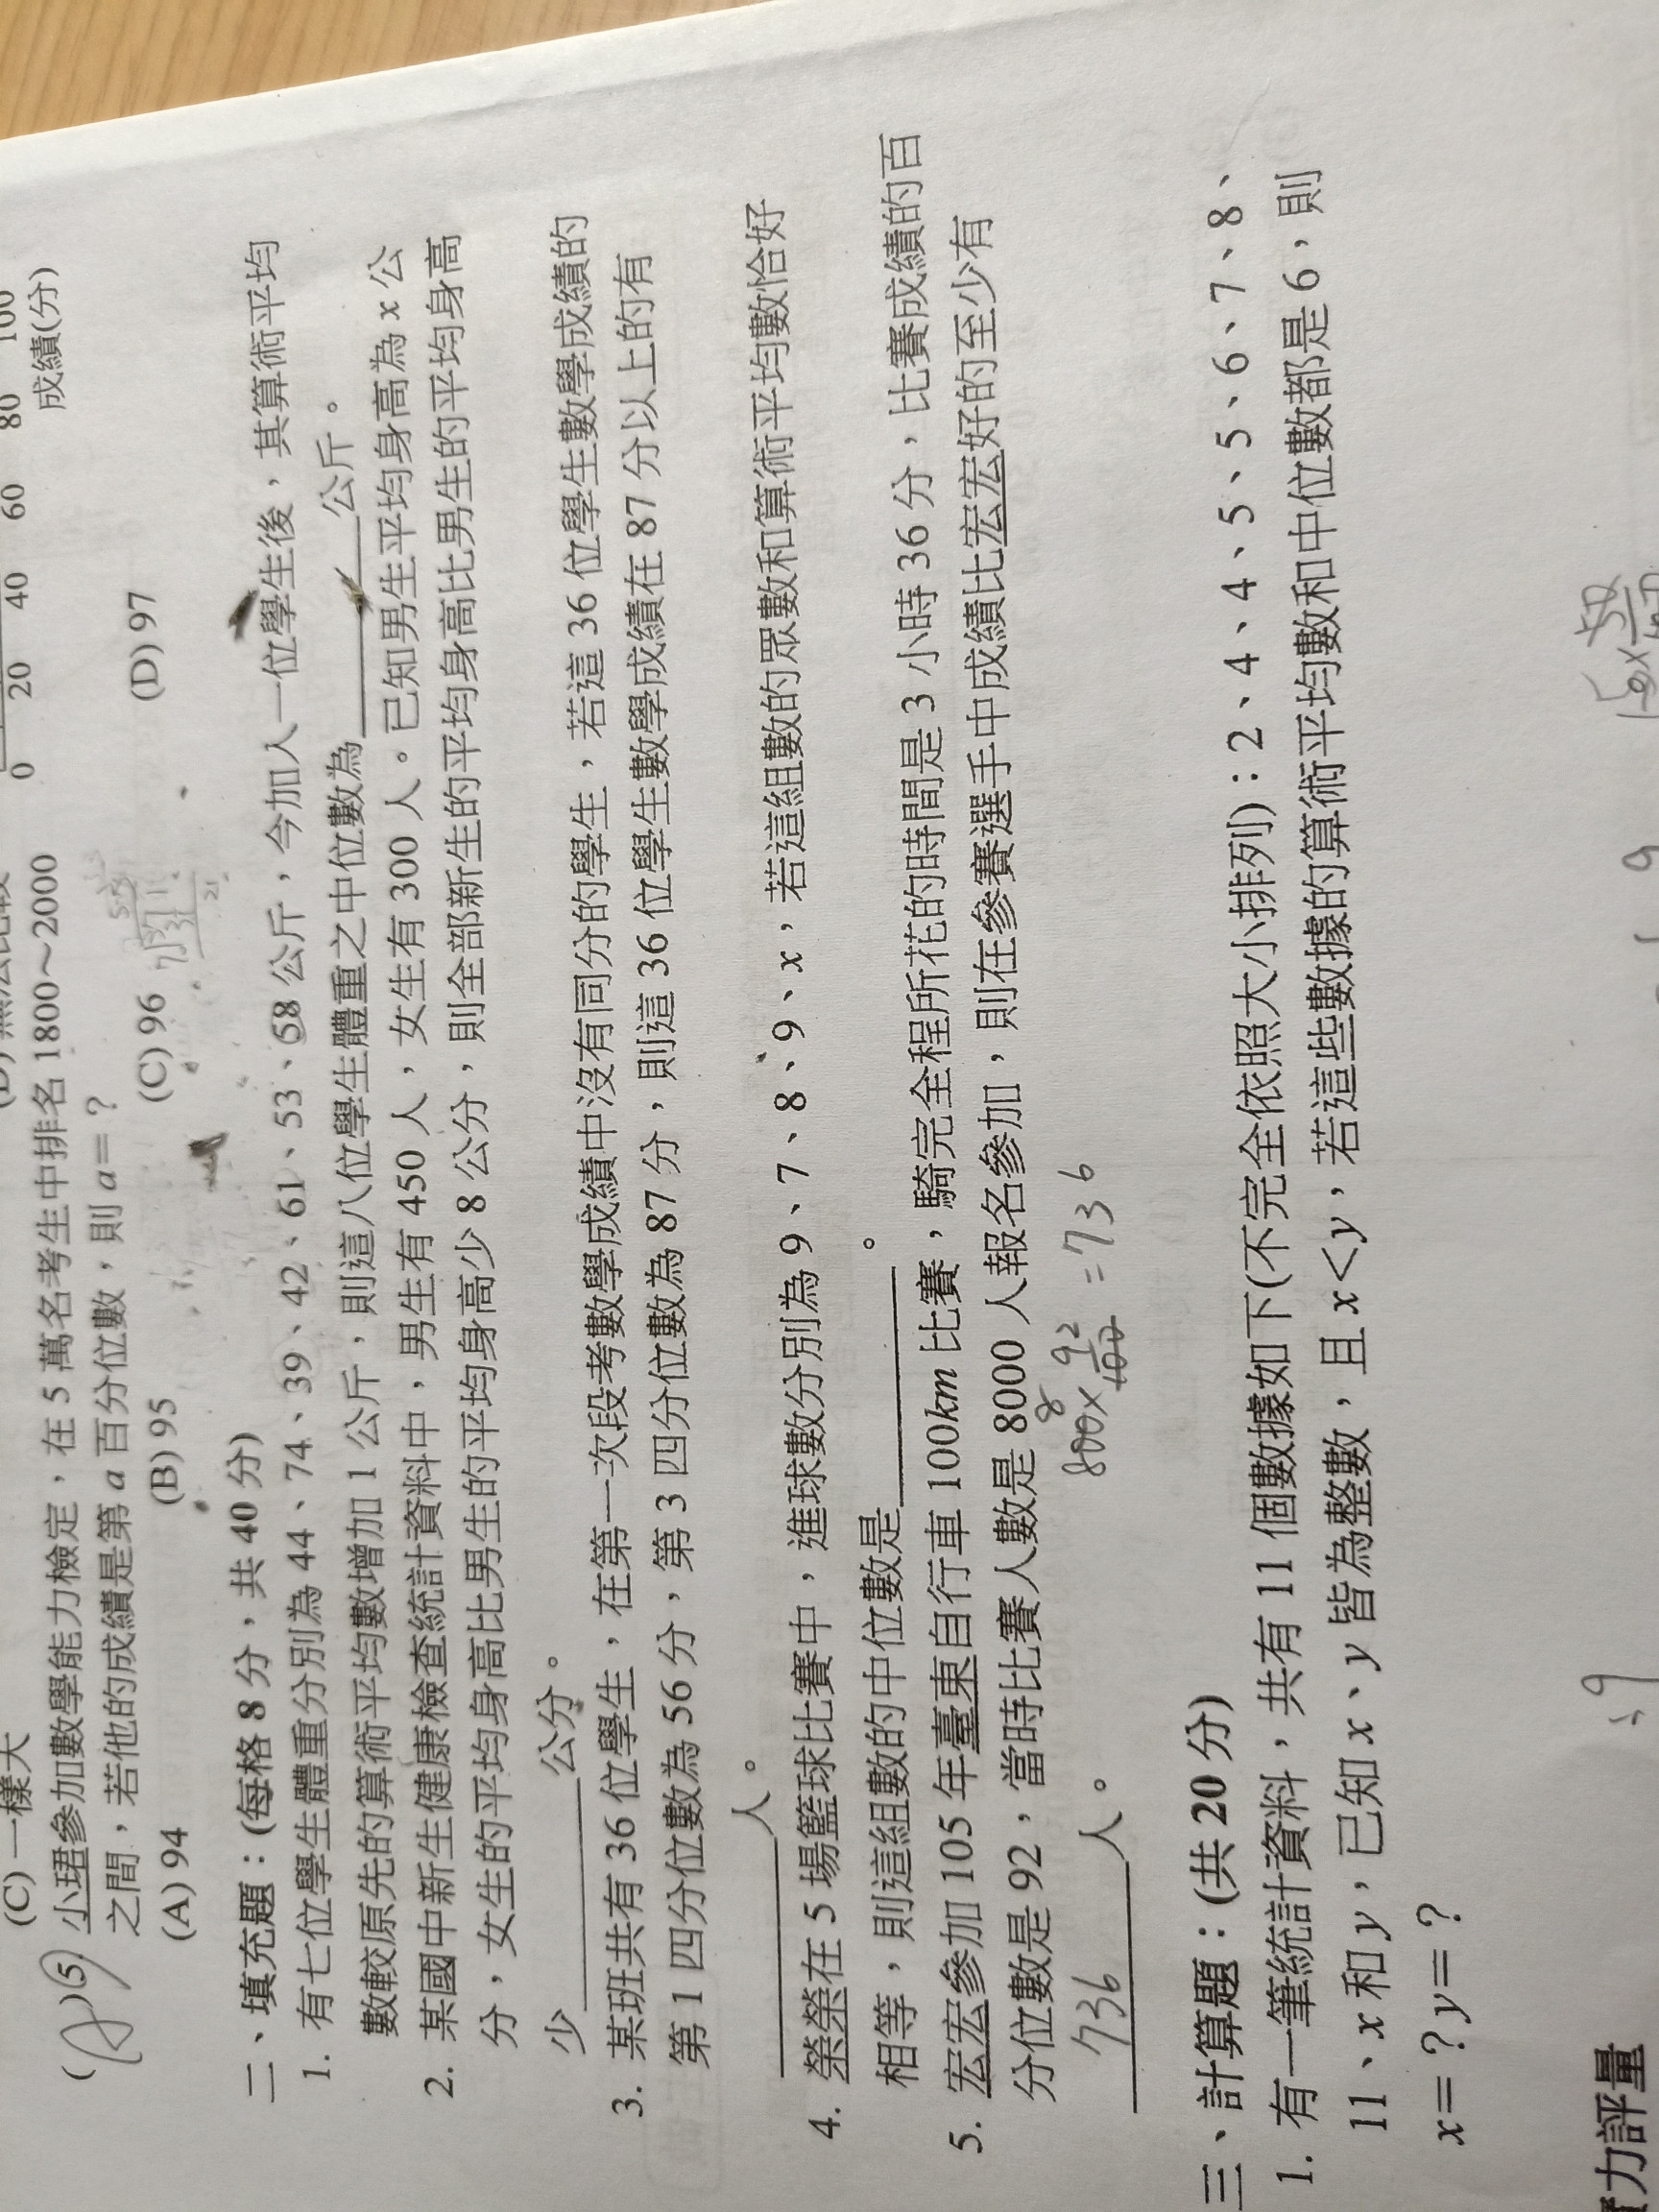 0 20 40 60 80 100
成績(分)
(C) 一樣大
( A ) 5 小珺參加數學能力檢定，在 5 萬名考生中排名 1800～2000
之間，若他的成績是第 a 百分位數，則 a＝？
(A) 94 (B) 95 (C) 96 (D) 97
二、填充題：(每格 8 分，共 40 分)
1. 有七位學生體重分別為 44、74、39、42、61、53、58 公斤，今加入一位學生後，其算術平均
數較原先的算術平均數增加 1 公斤，則這八位學生體重之中位數為______公斤。
2. 某國中新生健康檢查統計資料中，男生有 450 人，女生有 300 人。已知男生平均身高為 x 公
分，女生的平均身高比男生的平均身高少 8 公分，則全部新生的平均身高比男生的平均身高
少______公分。
3. 某班共有 36 位學生，在第一次段考數學成績中沒有同分的學生，若這 36 位學生數學成績的
第 1 四分位數為 56 分，第 3 四分位數為 87 分，則這 36 位學生數學成績在 87 分以上的有
______人。
4. 榮榮在 5 場籃球比賽中，進球數分別為 9、7、8、9、x，若這組數的眾數和算術平均數恰好
相等，則這組數的中位數是______。
5. 宏宏參加 105 年臺東自行車 100km 比賽，騎完全程所花的時間是 3 小時 36 分，比賽成績的百
分位數是 92，當時比賽人數是 8000 人報名參加，則在參賽選手中成績比宏宏好的至少有
736 人。
=736
三、計算題：(共 20 分)
1. 有一筆統計資料，共有 11 個數據如下(不完全依照大小排列)：2、4、4、5、5、6、7、8、
11、x 和 y，已知 x、y 皆為整數，且 x＜y，若這些數據的算術平均數和中位數都是 6，則
x＝？y＝？
力評量